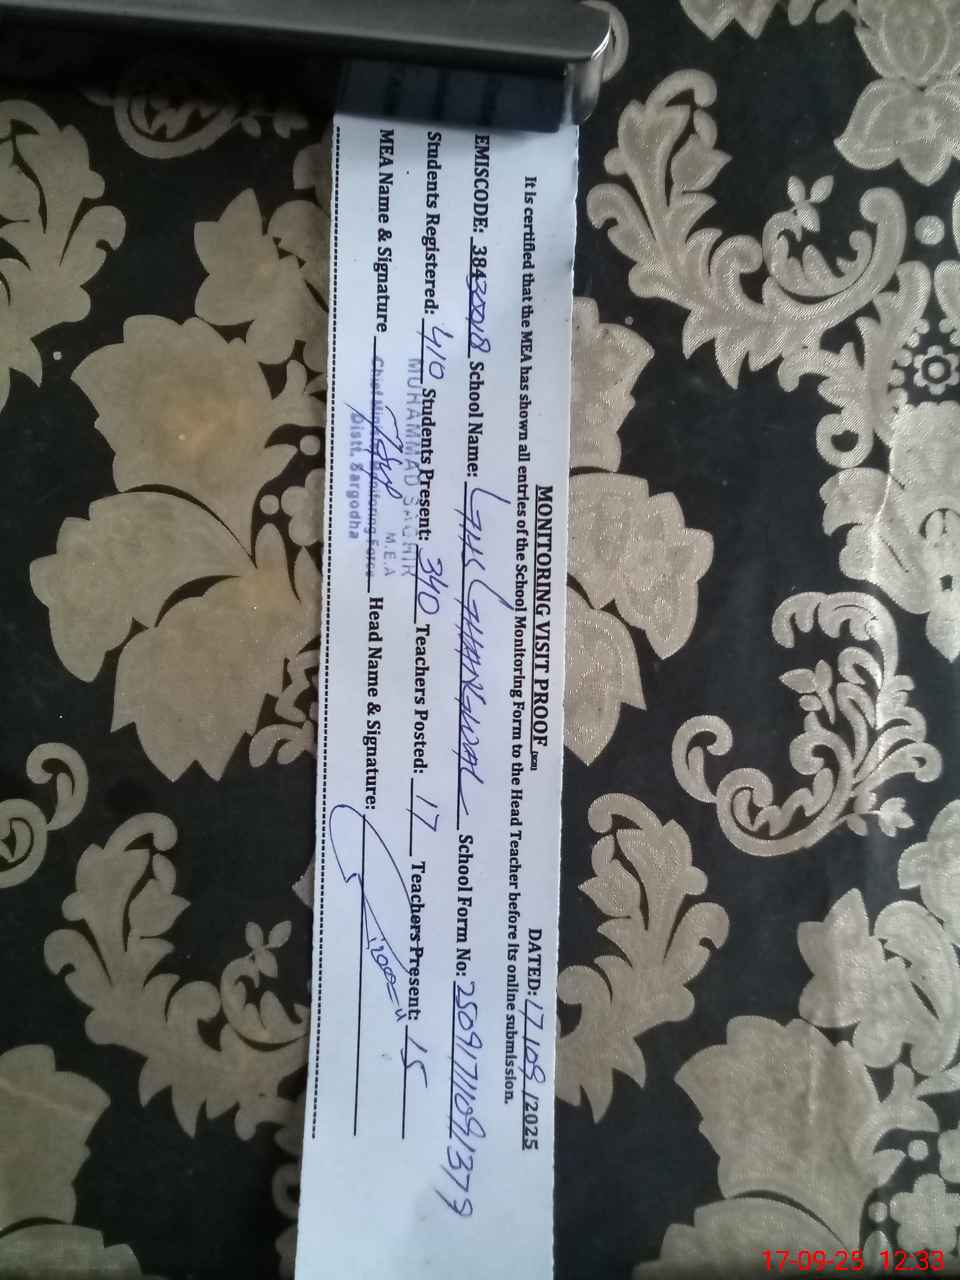 MONITORING VISIT PROOF
DATED: 17/09/2025
It is certified that the MEA has shown all entries of the School Monitoring Form to the Head Teacher before its online submission.
EMISCODE: 38430018 School Name: School Form No:
Students Registered: 410 Students Present: 340 Teachers Posted: 17 Teachers Present: 15
MUHAMMAD SAGHIR
M.E.A
MEA Name & Signature Head Name & Signature:
Monitoring Force
Distt. Sargodha
17-09-25 12:33